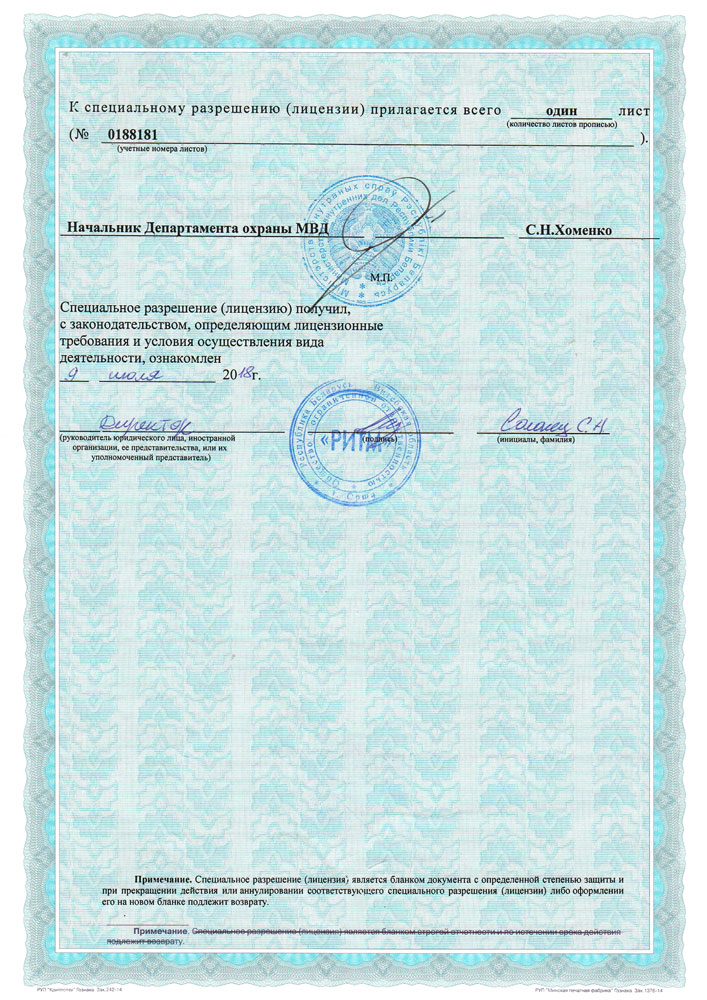 К специальному разрешению (лицензии) прилагается всего один лист
(количество листов прописью)
(№ 0188181 ).
(учетные номера листов)
Начальник Департамента охраны МВД С.Н.Хоменко
М.П.
Специальное разрешение (лицензию) получил,
с законодательством, определяющим лицензионные
требования и условия осуществления вида
деятельности, ознакомлен
9 июля 2018г.
Директор
(руководитель юридического лица, иностранной
организации, ее представительства, или их
уполномоченный представитель)
(подпись)
(инициалы, фамилия)
«РИТМ»
Примечание. Специальное разрешение (лицензия) является бланком документа с определенной степенью защиты и
при прекращении действия или аннулировании соответствующего специального разрешения (лицензии) либо оформлении
его на новом бланке подлежит возврату.
Примечание. Специальное разрешение (лицензия) является бланком строгой отчетности и по истечении срока действия
подлежит возврату.
РУП "Криптотех" Гознака. Зак.
РУП "Минская печатная фабрика" Гознака. Зак. 1376-14